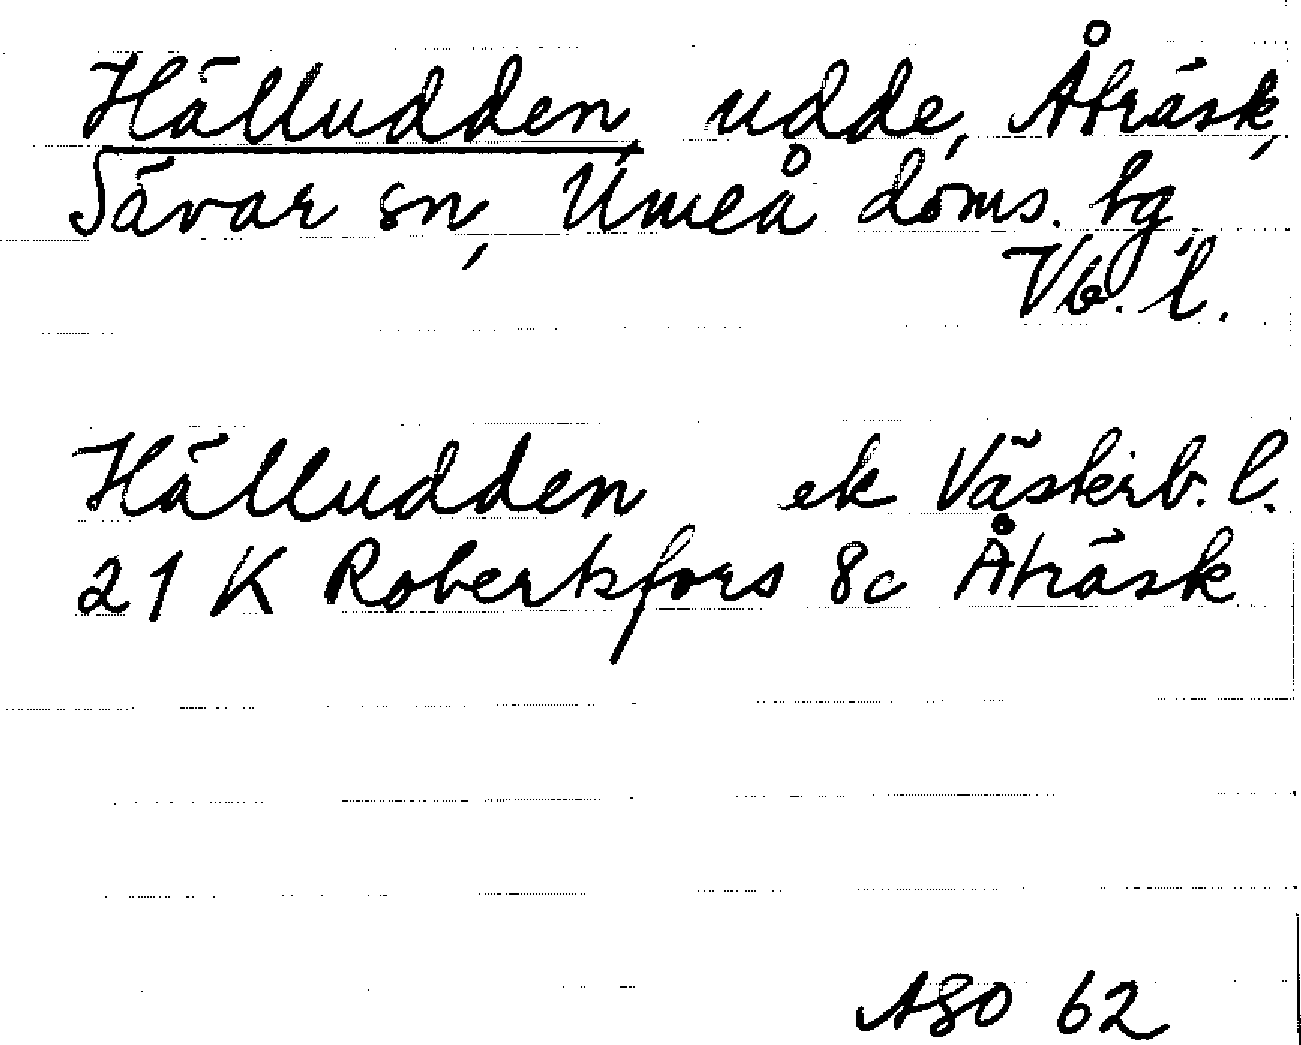 Hälludden, udde, Åträsk,
Sävar sn, Umeå doms. bg,
Vb. l.
Hälludden ek Västerb. l.
21 K Robertsfors 8c Åträsk
ASO 62